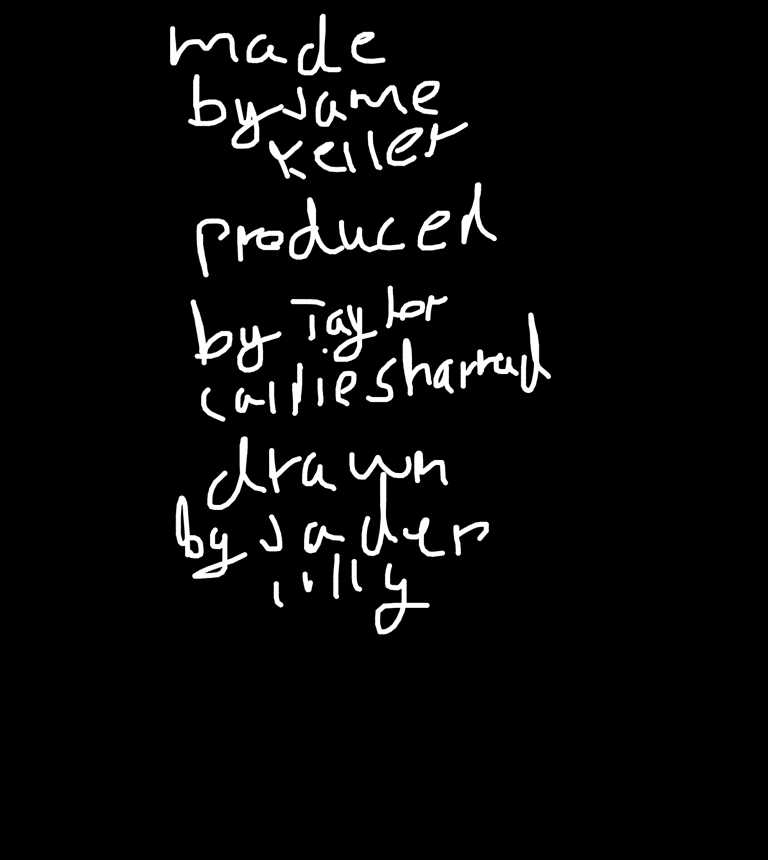 made
by Jame
Keller
produced
by Taylor
callie sharrad
drawn
by Jader
lilly